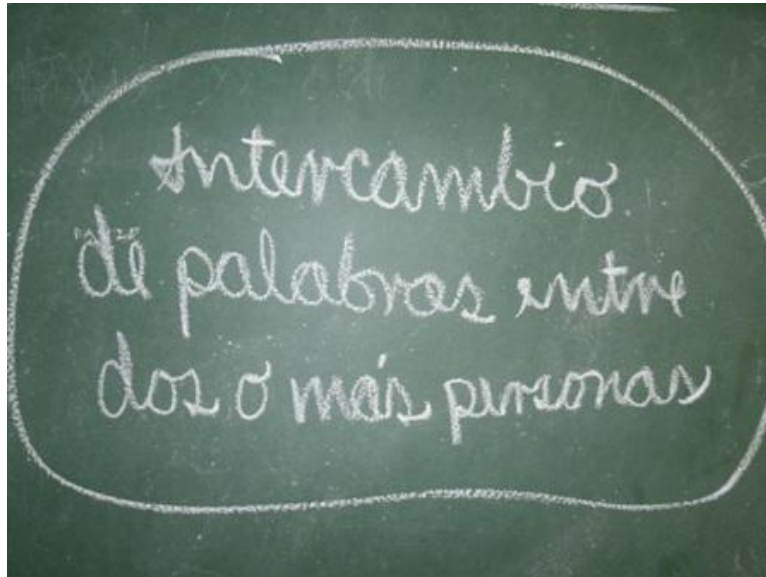 Intercambio
de palabras entre
dos o más personas